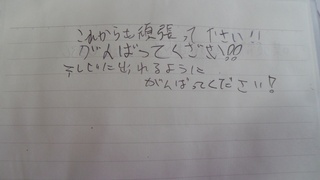 これからも頑張ってください!!
がんばってください!!
テレビに出れるように
がんばってください!